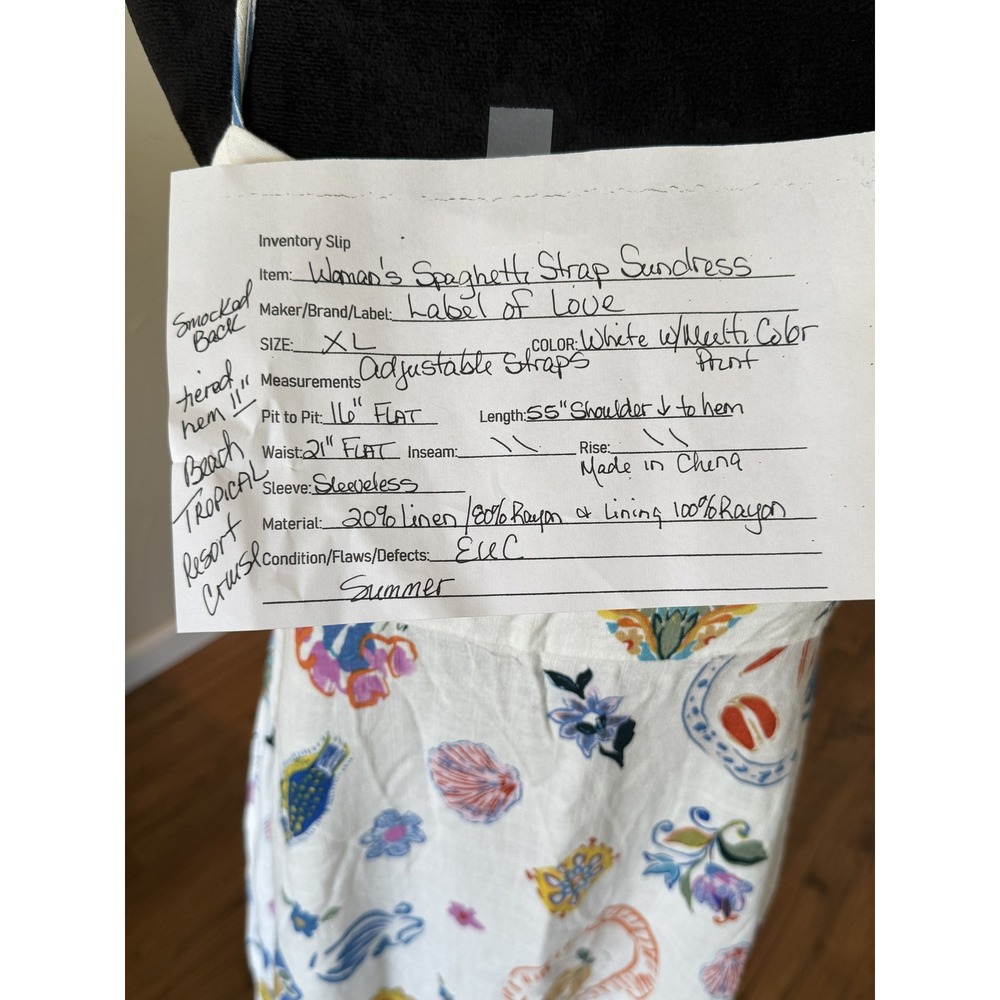 Inventory Slip
Item: Woman's Spaghetti Strap Sundress
Maker/Brand/Label: Label of Love
SIZE: XL COLOR: White w/Multi Color
Print
Measurements Adjustable Straps
Pit to Pit: 16" FLAT Length: 55" Shoulder ↓ to hem
Waist: 21" FLAT Inseam: \\ Rise: \\
Made in China
Sleeve: Sleeveless
Material: 20% linen/80% Rayon & Lining 100% Rayon
Condition/Flaws/Defects: EUC
Summer
Smocked
Back
tiered
hem 11"
Beach
TROPICAL
Resort
Cruise